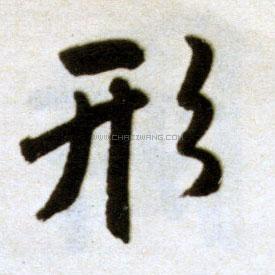 形
WWW.CHAZIWANG.COM